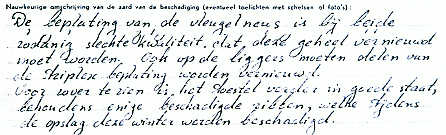 Nauwkeurige omschrijving van de aard van de beschadiging (eventueel toelichten met schetsen of foto's):
De beplating van de vleugelneus is bij beide
zodanig slechte kwaliteit, dat deze geheel vernieuwd
moet worden. Ook op de liggers moeten delen van
de triplex beplating worden vernieuwd.
Voor zover te zien is, het toestel verder in goede staat,
behoudens enige beschadigde plekken, welke tijdens
de opslag deze winter werden beschadigd.